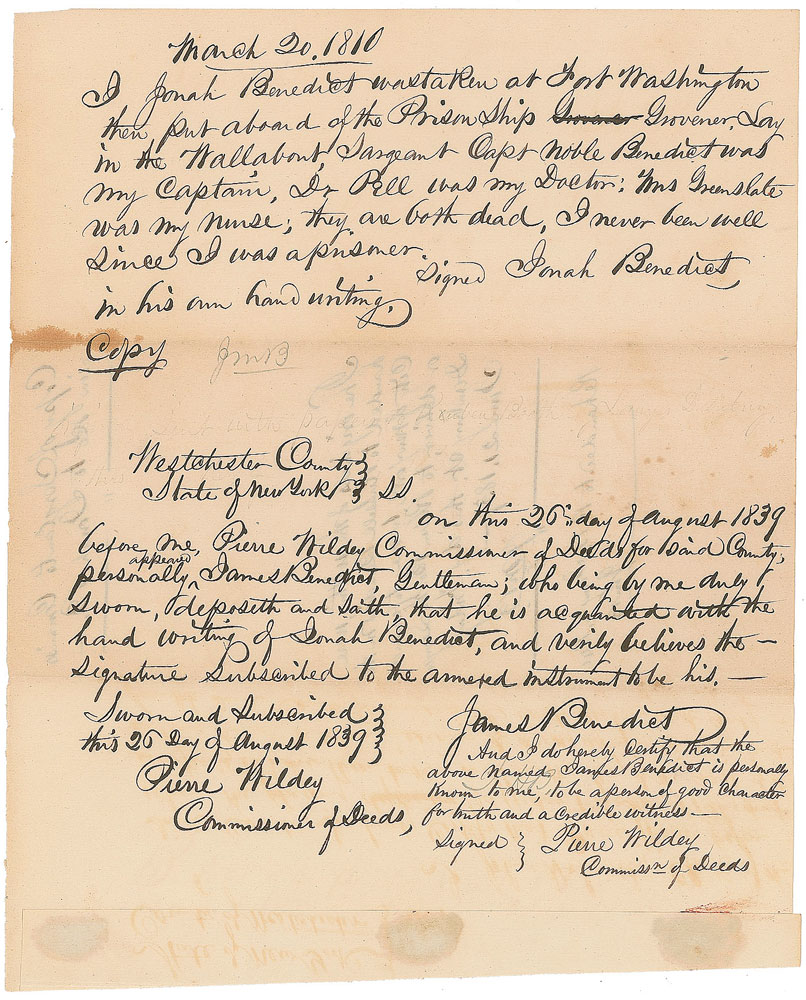 March 20, 1810
I Jonah Benedict was taken at Fort Washington
then put aboard of the Prison Ship Grovener Grovener, Lay
in the Wallabout, Sargeant Capt Noble Benedict was
my Captain, Dr Pell was my Doctor; Mrs Greenslate
was my nurse; they are both dead, I never been well
since I was a prisoner.
Signed Jonah Benedict,
in his own hand writing.
Copy JMB
Westchester County }
State of New York } SS.
on this 26th day of August 1839
before me, Pierre Wildey Commissioner of Deeds for said County,
appeared
personally ^ James Benedict, Gentleman; who being by me duly
Sworn, deposeth and saith, that he is acquainted with the
hand writing of Jonah Benedict, and verily believes the —
signature Subscribed to the annexed instrument to be his. —
Sworn and Subscribed }
this 26 Day of August 1839 }
Pierre Wildey
Commissioner of Deeds,
James Benedict
And I do hereby Certify that the
above named James Benedict is personally
known to me, to be a person of good character
for truth and a credible witness —
Signed } Pierre Wildey
Commissn of Deeds